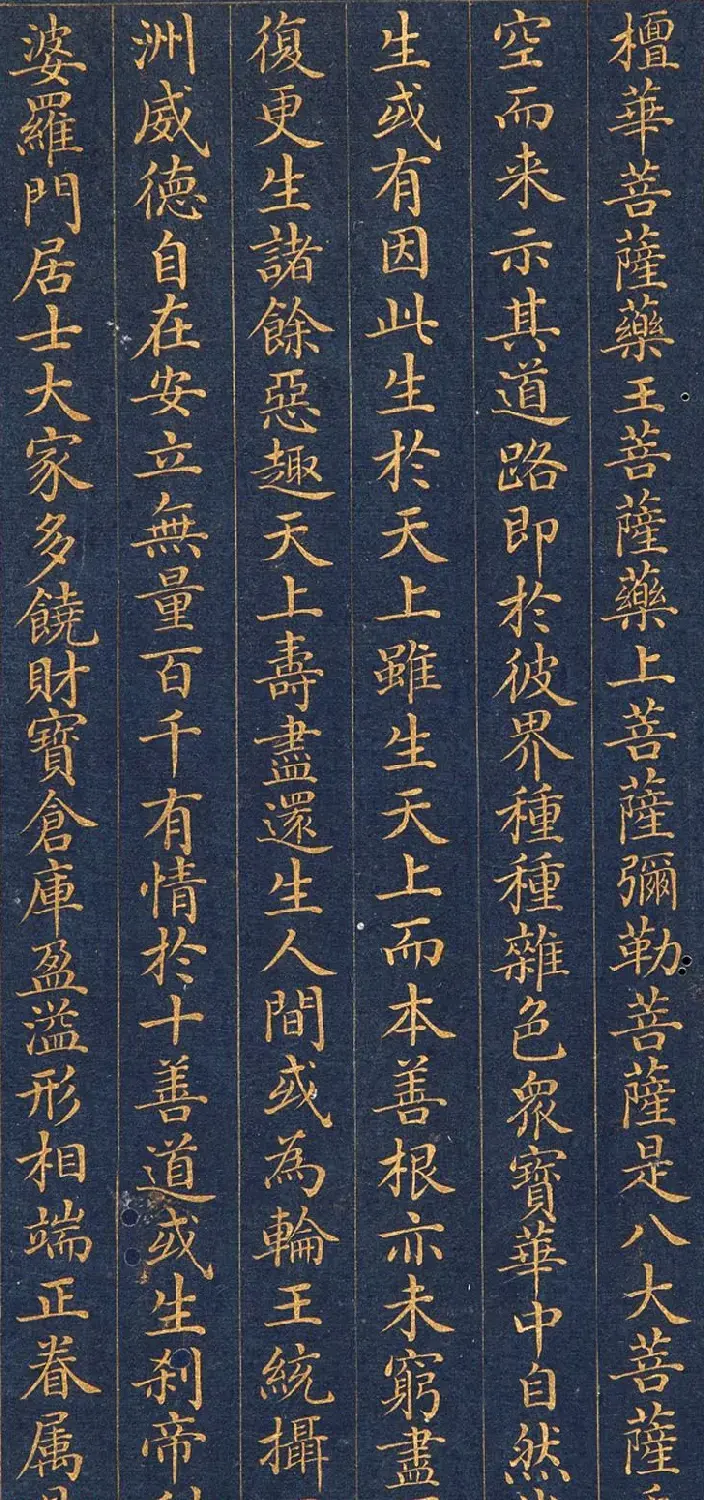 檀華菩薩藥王菩薩藥上菩薩彌勒菩薩是八大菩薩
空而来示其道路即於彼界種種雜色眾寶華中自然
生或有因此生於天上雖生天上而本善根亦未窮盡
復更生諸餘惡趣天上壽盡還生人間或為輪王統攝
洲威德自在安立無量百千有情於十善道或生刹帝
婆羅門居士大家多饒財寶倉庫盈溢形相端正眷属